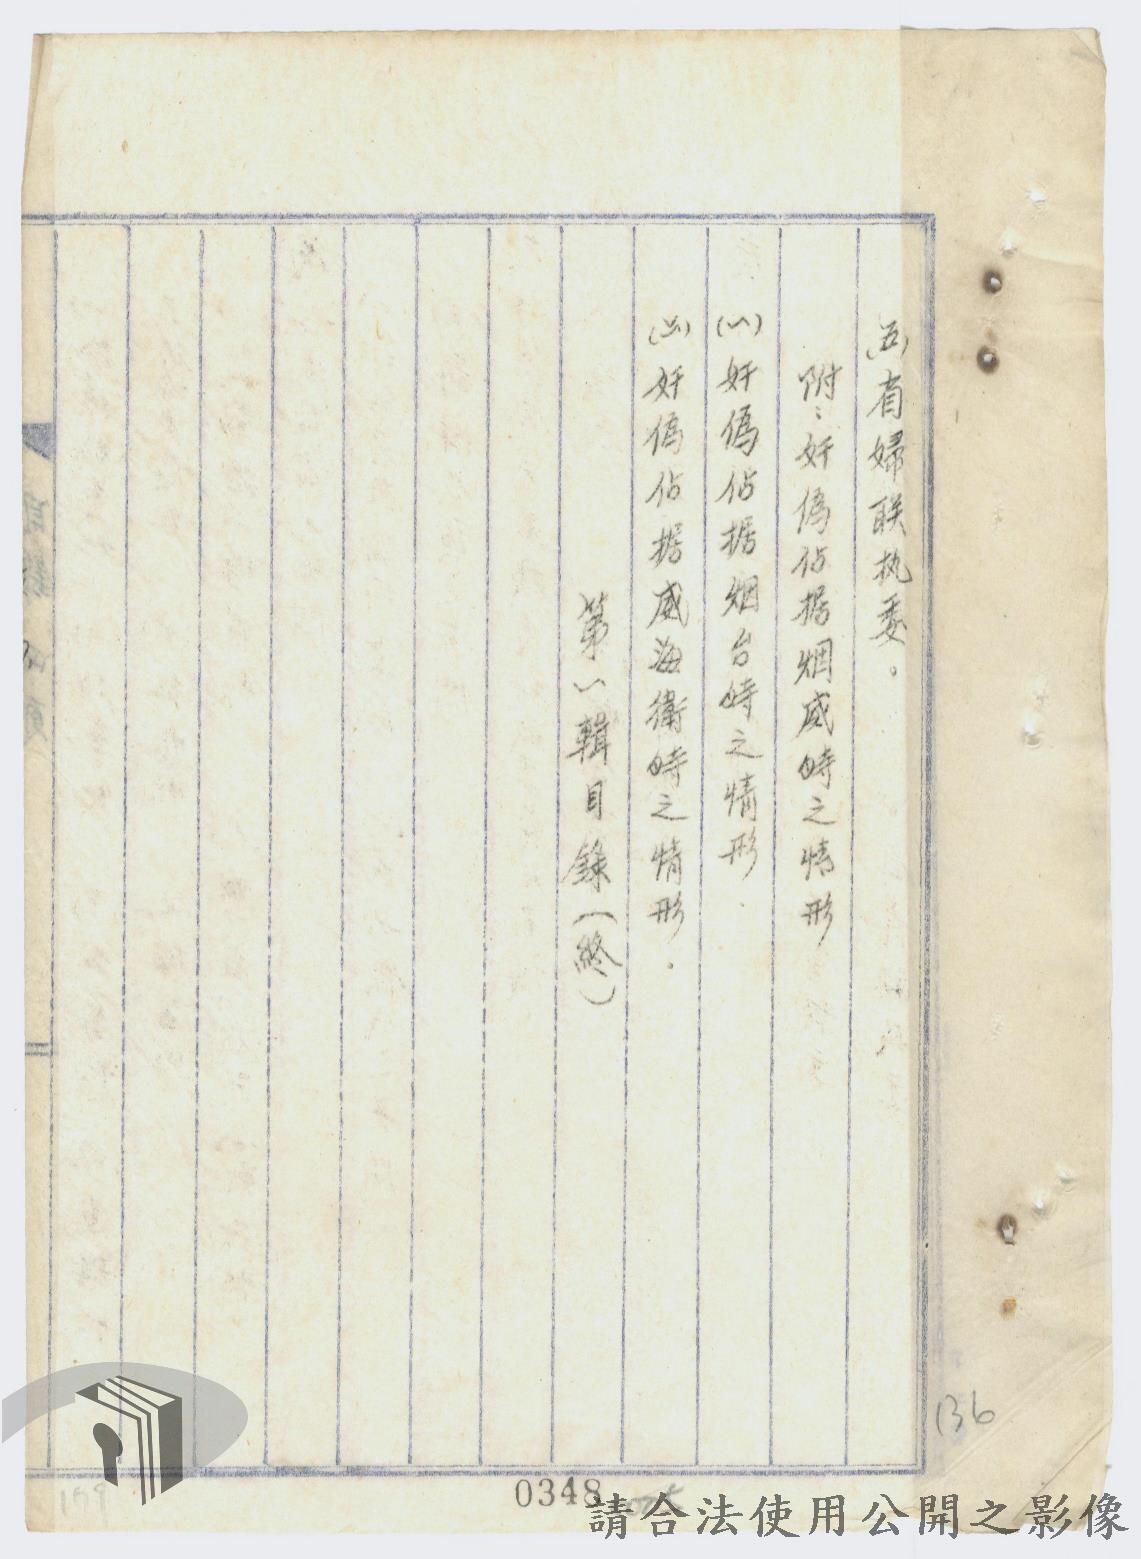 (五)有婦联执委。
附：奸偽佔据烟威時之情形
(一)奸偽佔据烟台時之情形.
(二)奸偽佔据威海衛時之情形.
第一輯目錄(終)
136
0348
159
請合法使用公開之影像